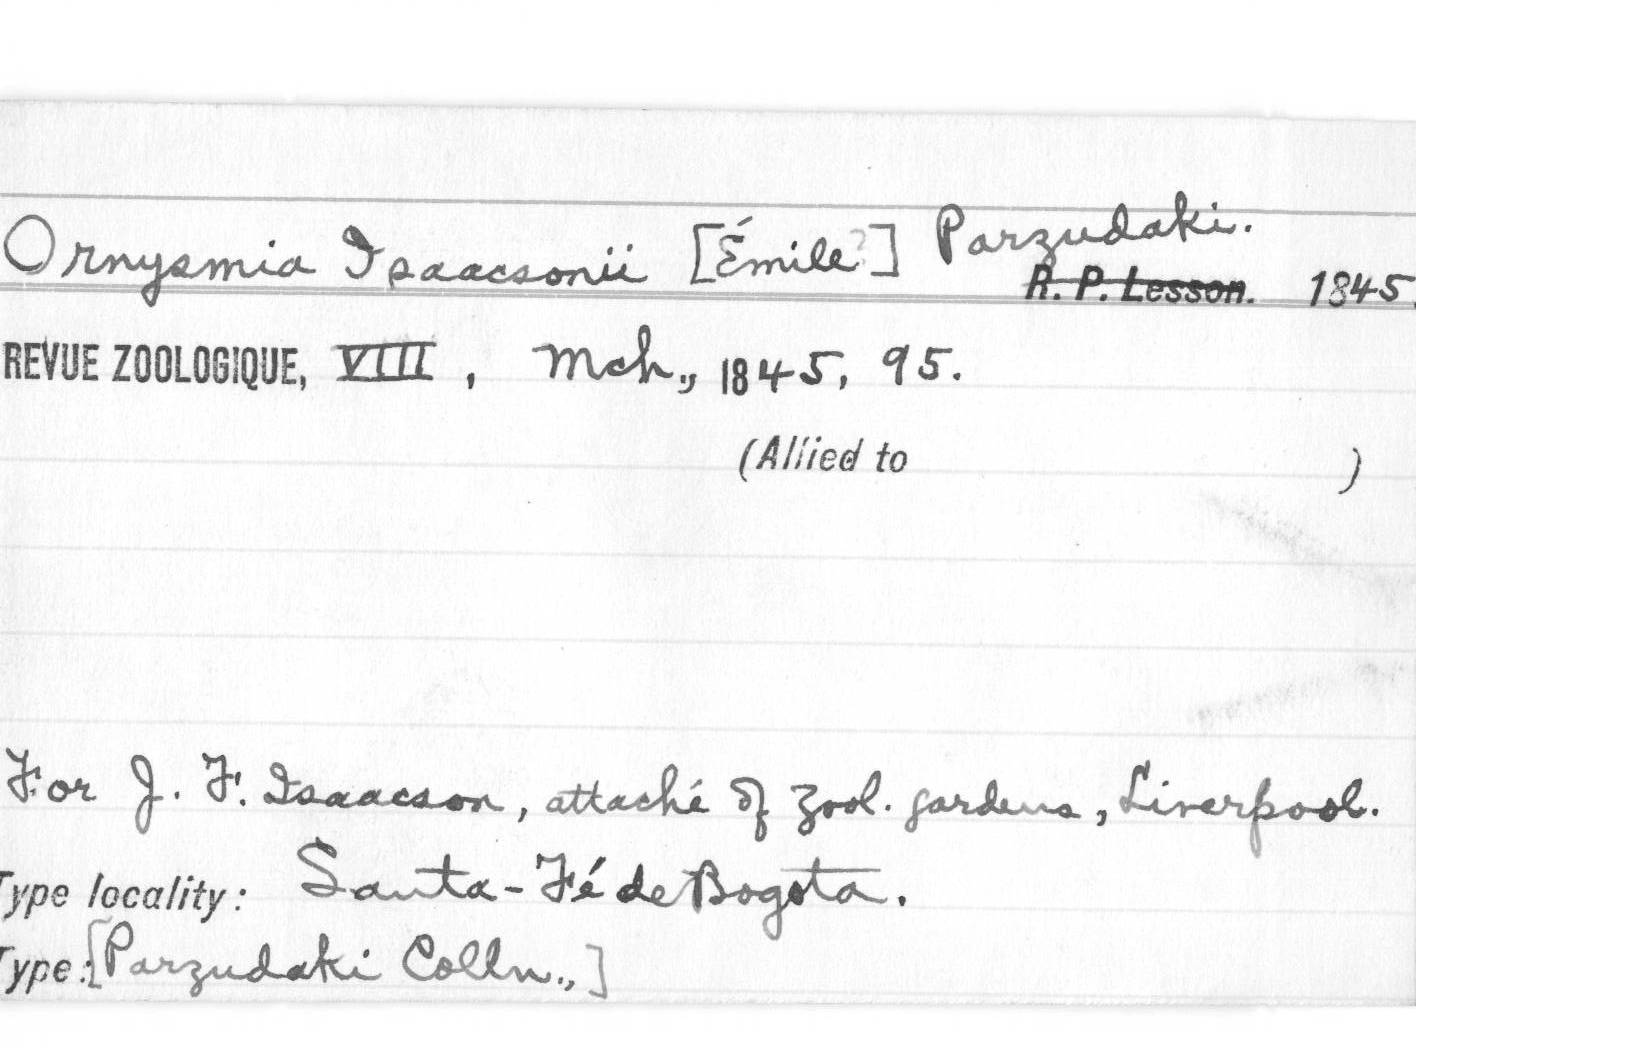 Ornysmia Isaacsonii [Émile?] Parzudaki.
R. P. Lesson. 1845.
REVUE ZOOLOGIQUE, VIII, Mch., 1845, 95.
(Allied to )
For J. F. Isaacson, attaché of Zool. gardens, Liverpool.
Type locality: Santa-Fé de Bogota.
Type: [Parzudaki Colln.,]